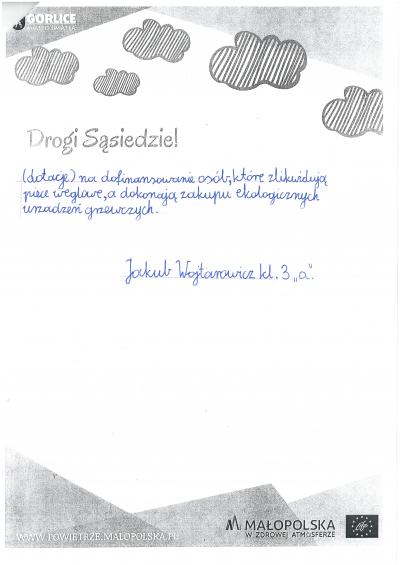 GORLICE
MIASTO ŚWIATŁA
Drogi Sąsiedzie!
(dotacje) na dofinansowanie osób, które zlikwidują
piece węglowe, a dokonają zakupu ekologicznych
urządzeń grzewczych.
Jakub Wojtarowicz kl. 3 „a".
WWW.POWIETRZE.MALOPOLSKA.PL
MAŁOPOLSKA
W ZDROWEJ ATMOSFERZE